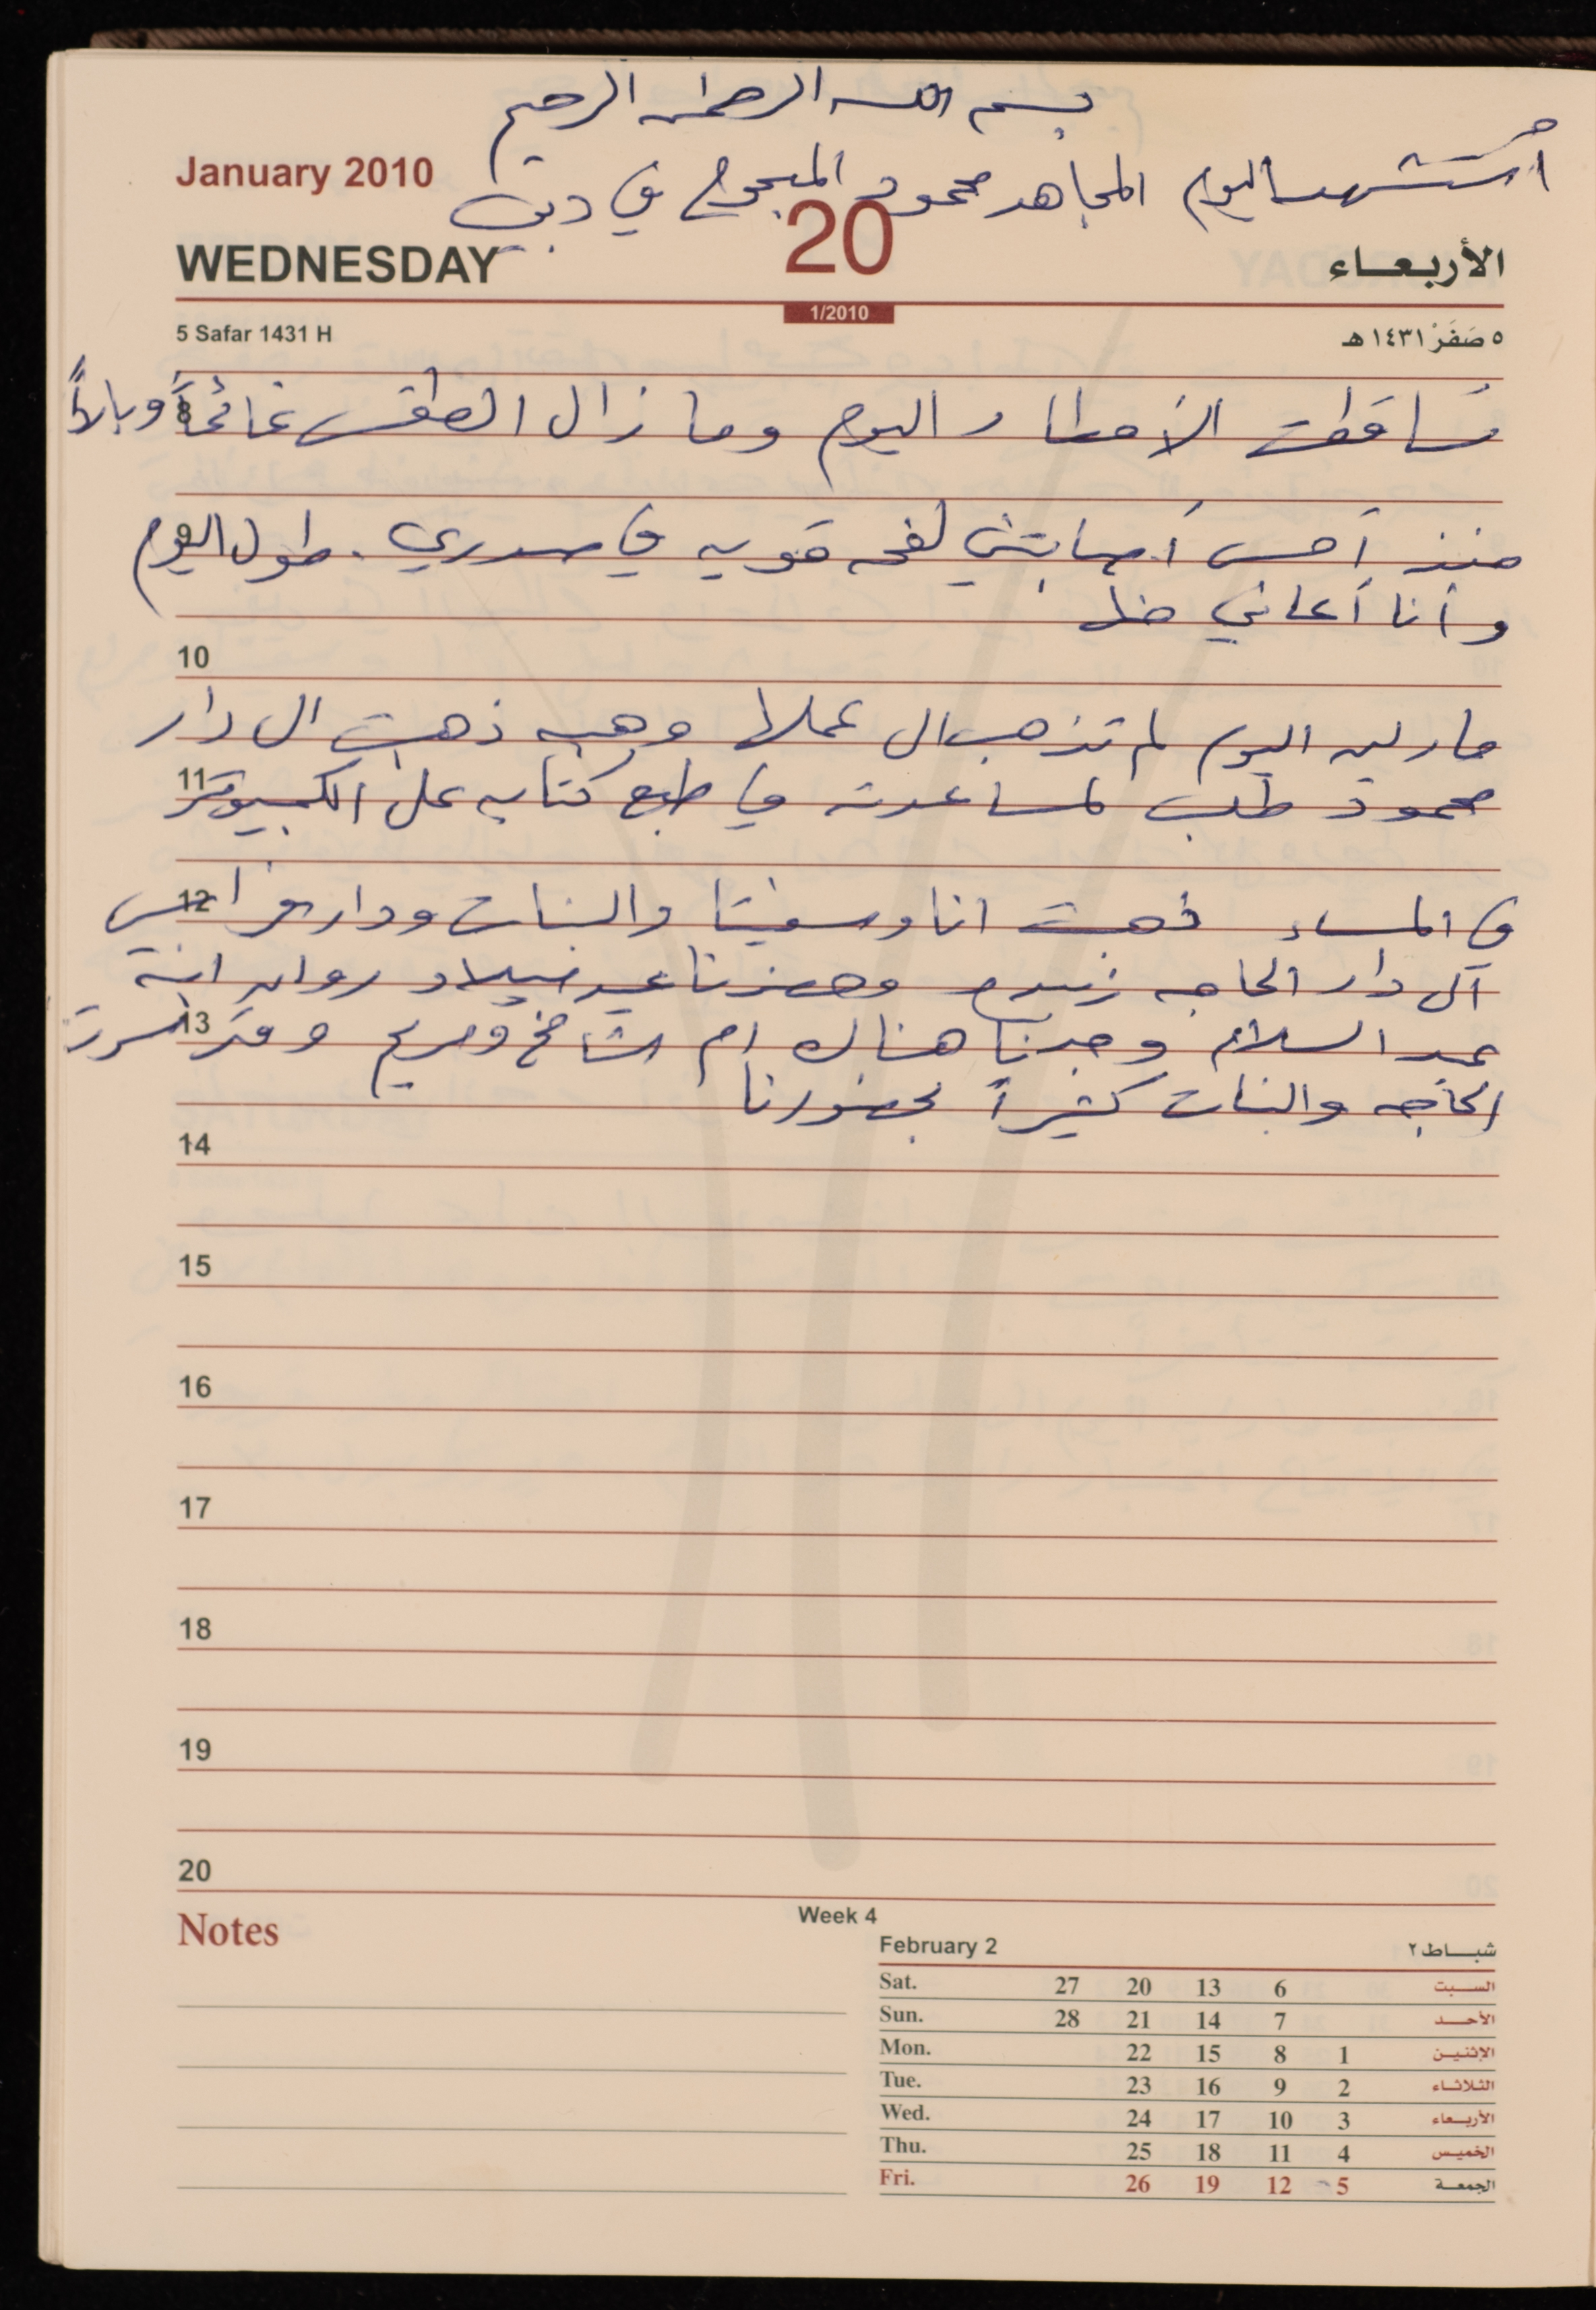 بسم الله الرحمن الرحيم
January 2010
أُستشهد اليوم المجاهد محمود المبحوح في دبي
WEDNESDAY 20 الأربعاء
1/2010
5 Safar 1431 H ٥ صَفَرْ ١٤٣١ هـ
تساقطت الأمطار اليوم وما زال الطقس غائماً وبارداً
8
منذ أمس أصابتني لفحه قويه في صدري . طول اليوم
9
وأنا أعاني منها
10
مارلين اليوم لم تذهب الى عملها وهبه ذهبت الى دار
محمود طلب لمساعدته في طبع كتابه على الكمبيوتر
11
في المساء ذهبت انا وسفيتا والبنات ودار
12
الى دار الحاجه زينب وحضرنا عيد ميلاد روان ابنة
عبد السلام وجدنا هناك ام الشامخ ومريح وقد سرت
13
الحاجه والبنات كثيراً بحضورنا
14
15
16
17
18
19
20
Notes
Week 4
February 2 شباط ٢
Sat. 27 20 13 6 السبت
Sun. 28 21 14 7 الأحد
Mon. 22 15 8 1 الإثنين
Tue. 23 16 9 2 الثلاثاء
Wed. 24 17 10 3 الأربعاء
Thu. 25 18 11 4 الخميس
Fri. 26 19 12 5 الجمعة